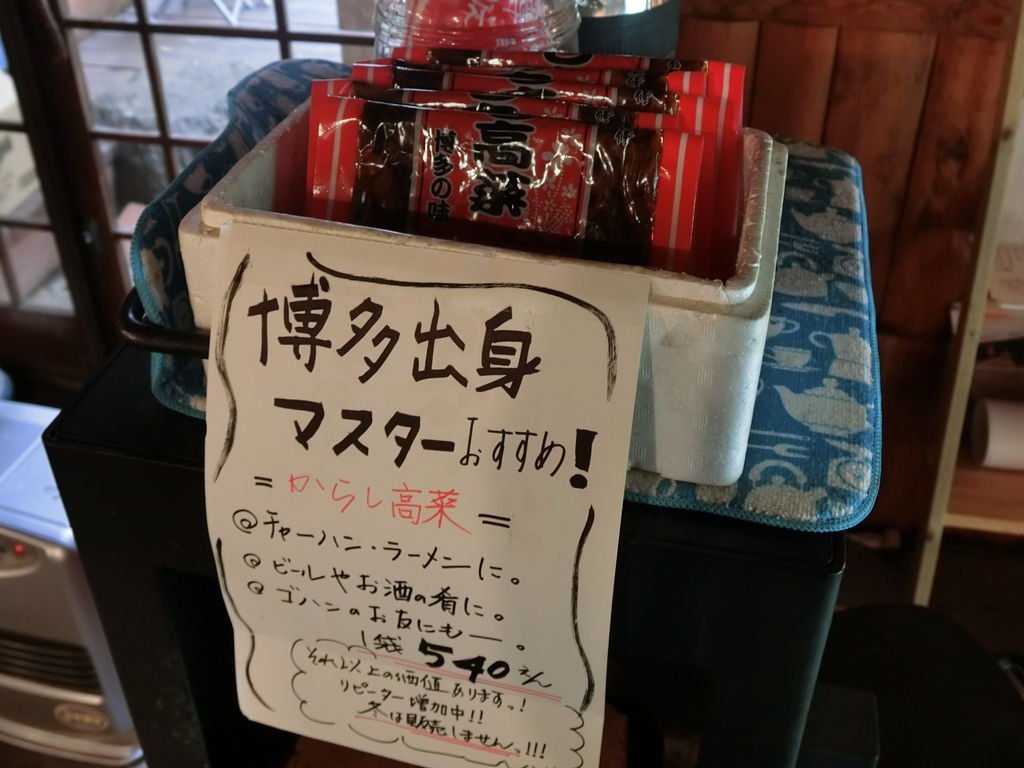 高菜
博多の味
博多出身
マスターおすすめ!
=からし高菜=
@チャーハン・ラーメンに。
@ビールやお酒の肴に。
@ゴハンのお友にもー。
1袋540えん
それ以上の価値あります。!
リピーター増加中!!
冬は販売しませんっ!!!